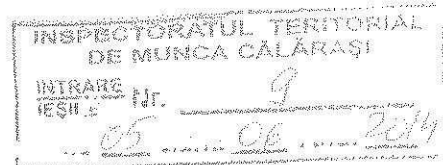 INSPECTORATUL TERITORIAL
DE MUNCA CĂLĂRAȘI
INTRARE
IEȘIRE Nr. 9
05 06 2014